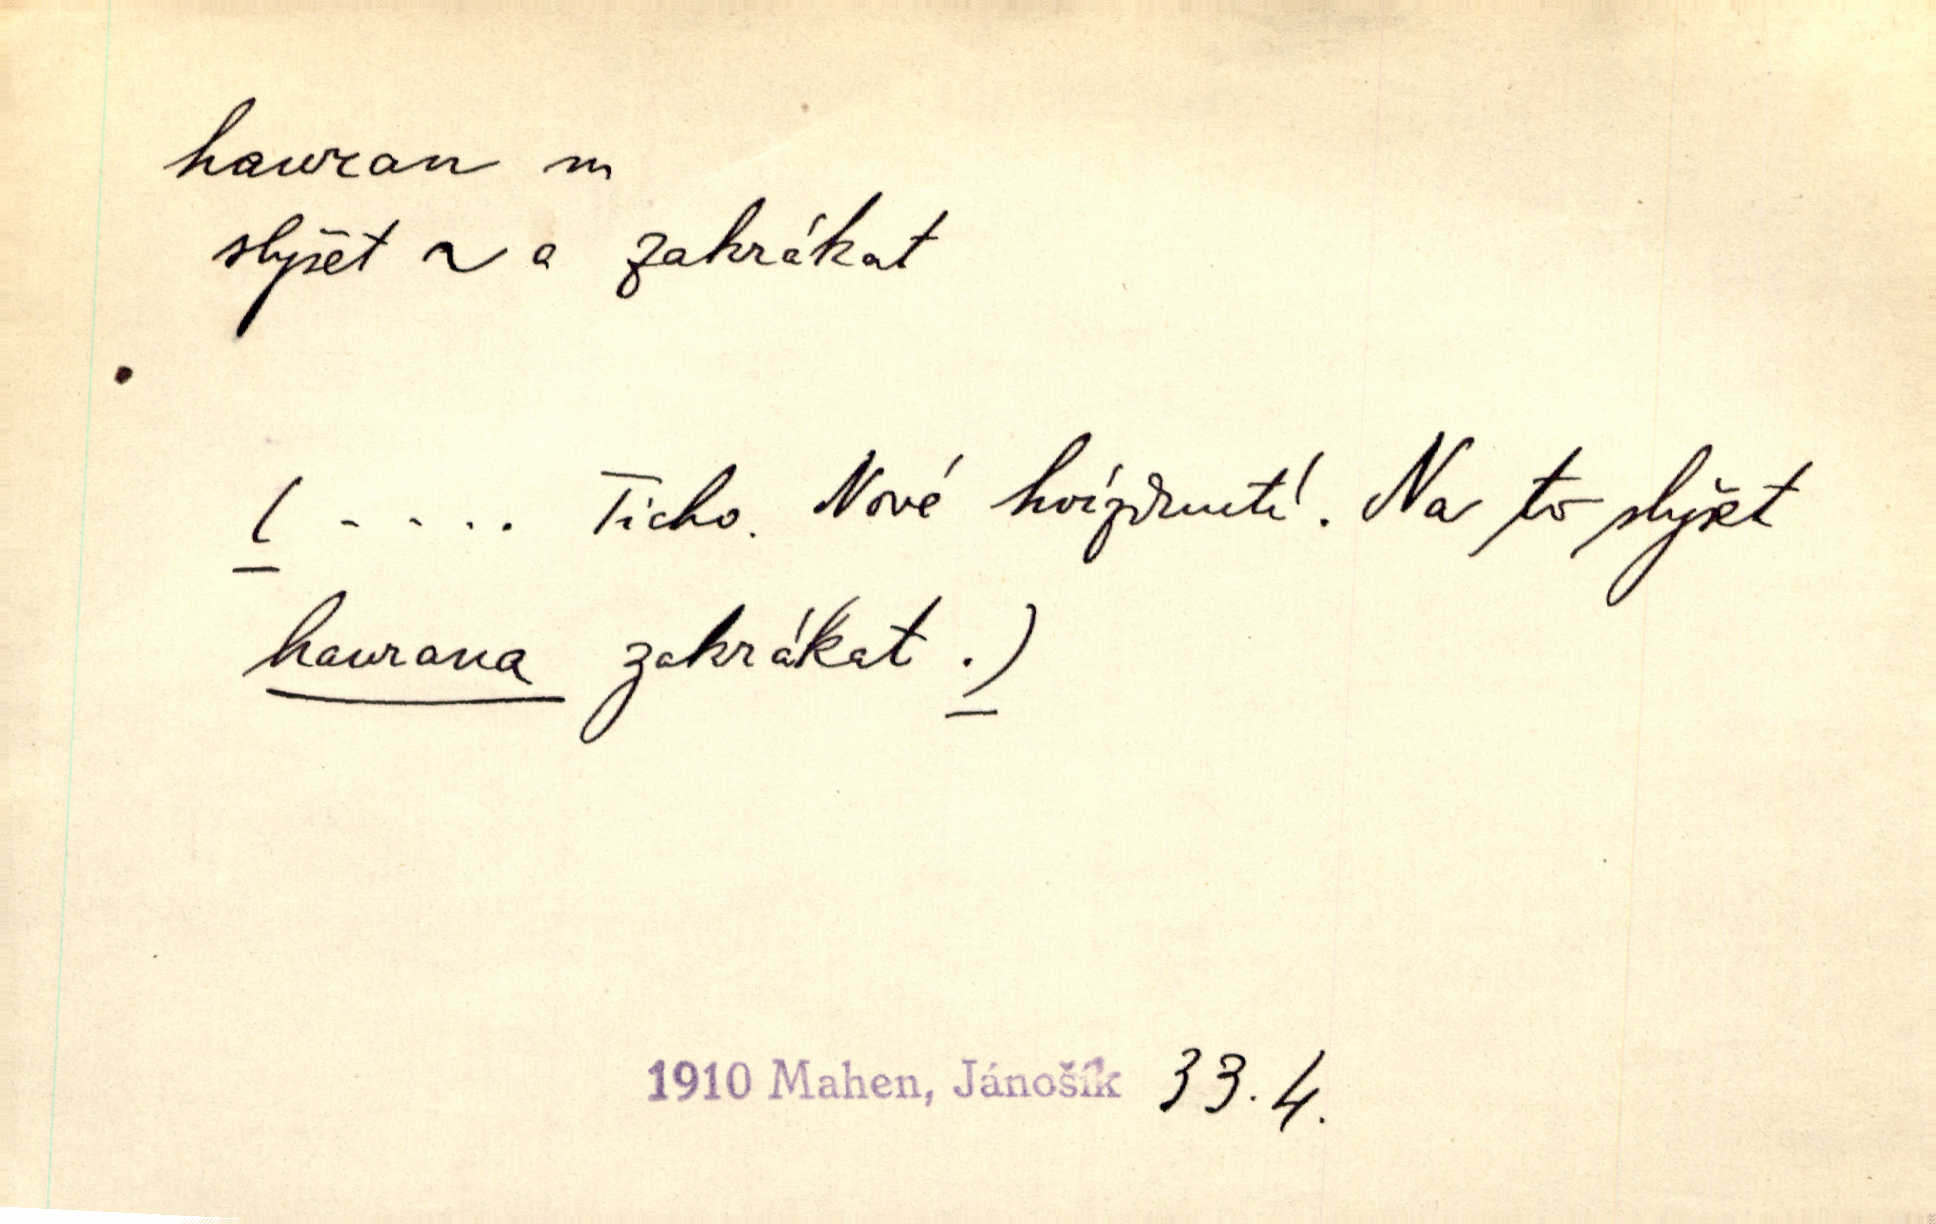 havran m
slyšet ~ a zakrákat
( .... Ticho. Nové hvízdnutí. Na to slyšet
havrana zakrákat.)
1910 Mahen, Jánošík 33.4.